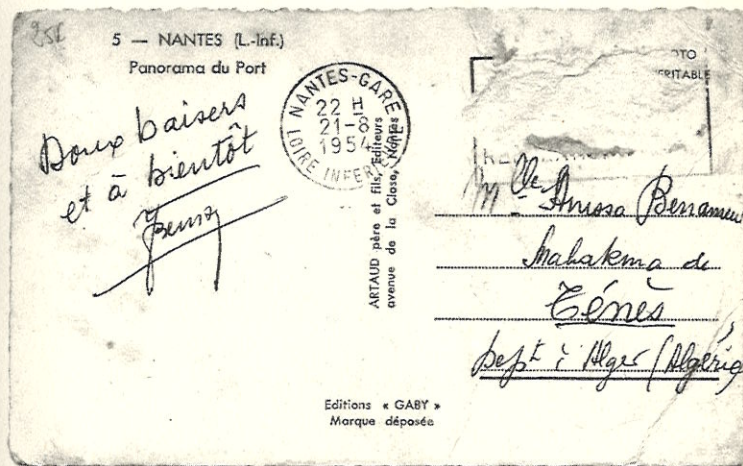 5 — NANTES (L.-Inf.)
Panorama du Port
Doux baisers
et à bientôt
NANTES-GARE
22 H
21-8
1954
LOIRE INFERIEURE
ARTAUD père et fils, Editeurs
avenue de la Close, Nantes
OTO
ERITABLE
Mlle Anissa
Mahakma de
Ténès
Dept d'Alger (Algérie)
Editions « GABY »
Marque déposée